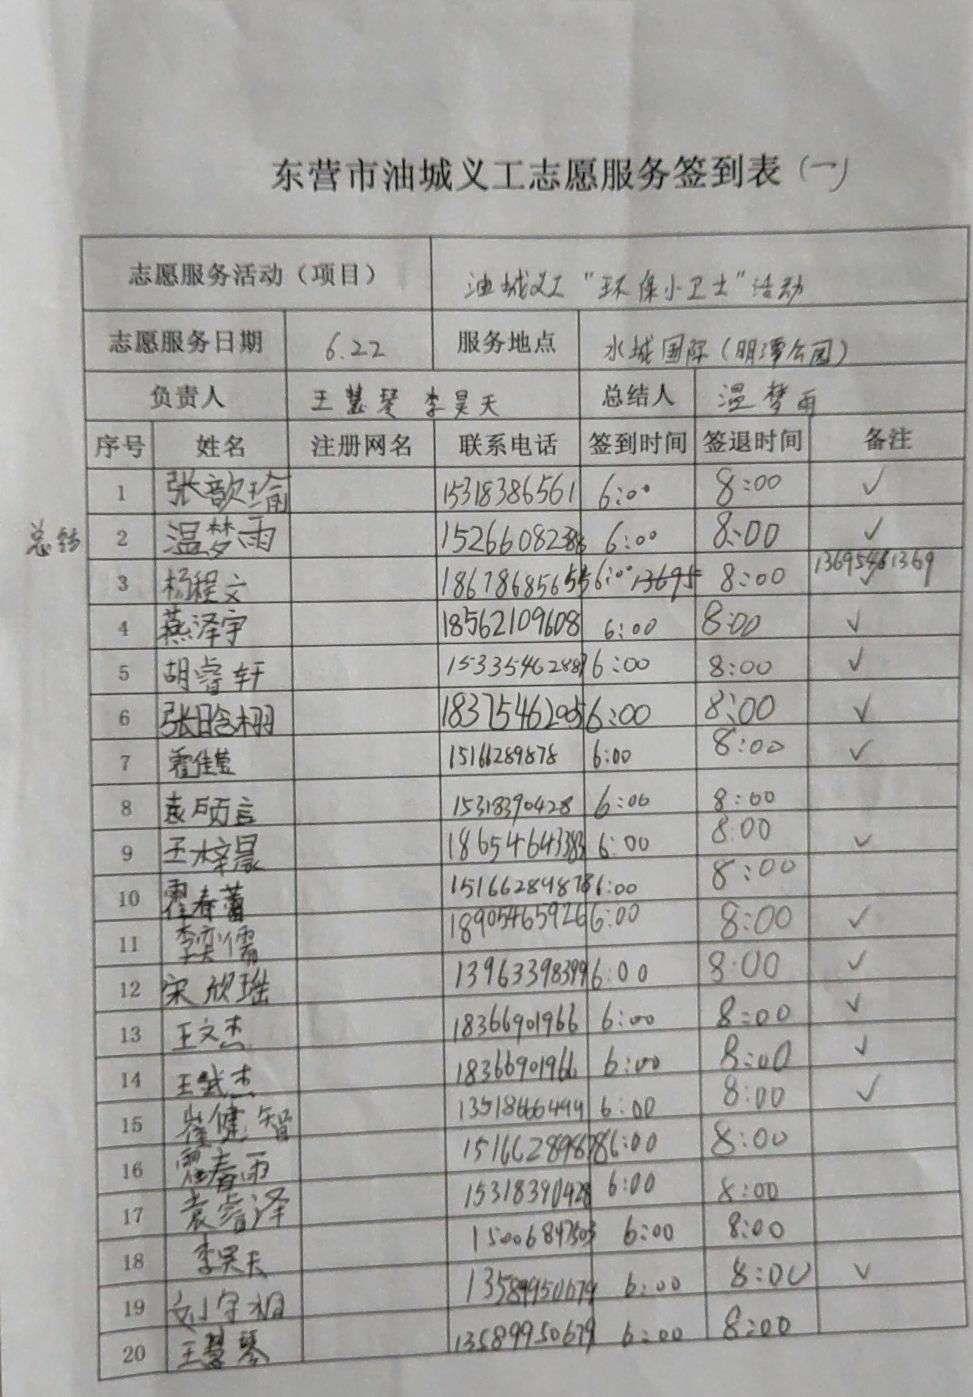 东营市油城义工志愿服务签到表（一）
志愿服务活动（项目） 油城义工“环保小卫士”活动
志愿服务日期 6.22 服务地点 水城国际（明潭公园）
负责人 王慧琴 李昊天 总结人 温梦雨
序号 姓名 注册网名 联系电话 签到时间 签退时间 备注
1 张歆瑜 15318386561 6:00 8:00 ✓
总结 2 温梦雨 15266082388 6:00 8:00 ✓
3 杨程文 6:00 8:00 13695461369 ✓
4 燕泽宇 18562109608 6:00 8:00 ✓
5 胡睿轩 15335462887 6:00 8:00 ✓
6 张晗栩 18375462005 6:00 8:00 ✓
7 霍佳莹 15166289878 6:00 8:00 ✓
8 袁硕言 15318390428 6:00 8:00
9 王梓晨 18654643383 6:00 8:00 ✓
10 霍春蕾 15166289878 6:00 8:00
11 李奕儒 18905465926 6:00 8:00 ✓
12 宋欣瑶 13963398399 6:00 8:00 ✓
13 王文杰 18366901966 6:00 8:00 ✓
14 王武杰 18366901966 6:00 8:00 ✓
15 崔健智 13518666444 6:00 8:00 ✓
16 霍春雨 15166289878 6:00 8:00
17 袁睿泽 15318390428 6:00 8:00
18 李昊天 15006847503 6:00 8:00
19 刘宇桓 13589950679 6:00 8:00 ✓
20 王慧琴 13589950679 6:00 8:00